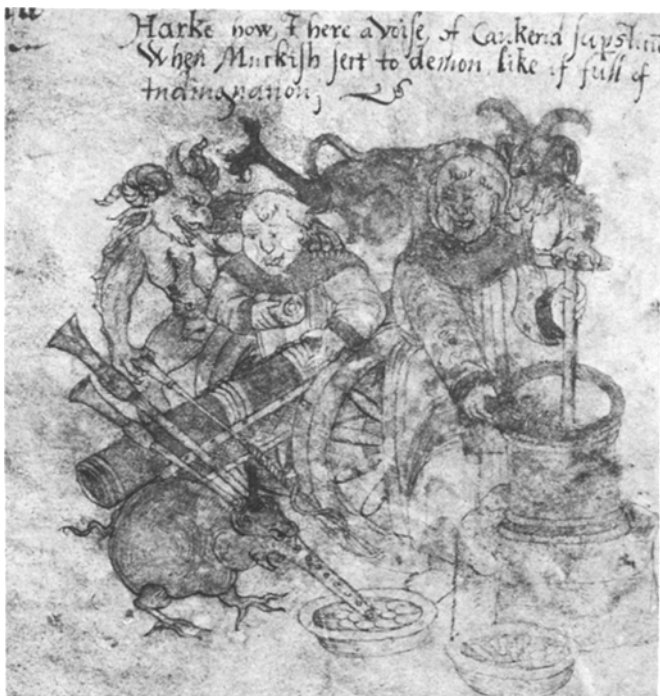 Harke now, I here a voise, of Cankerd
When Munkish sect so demon like is full of
Indignation;